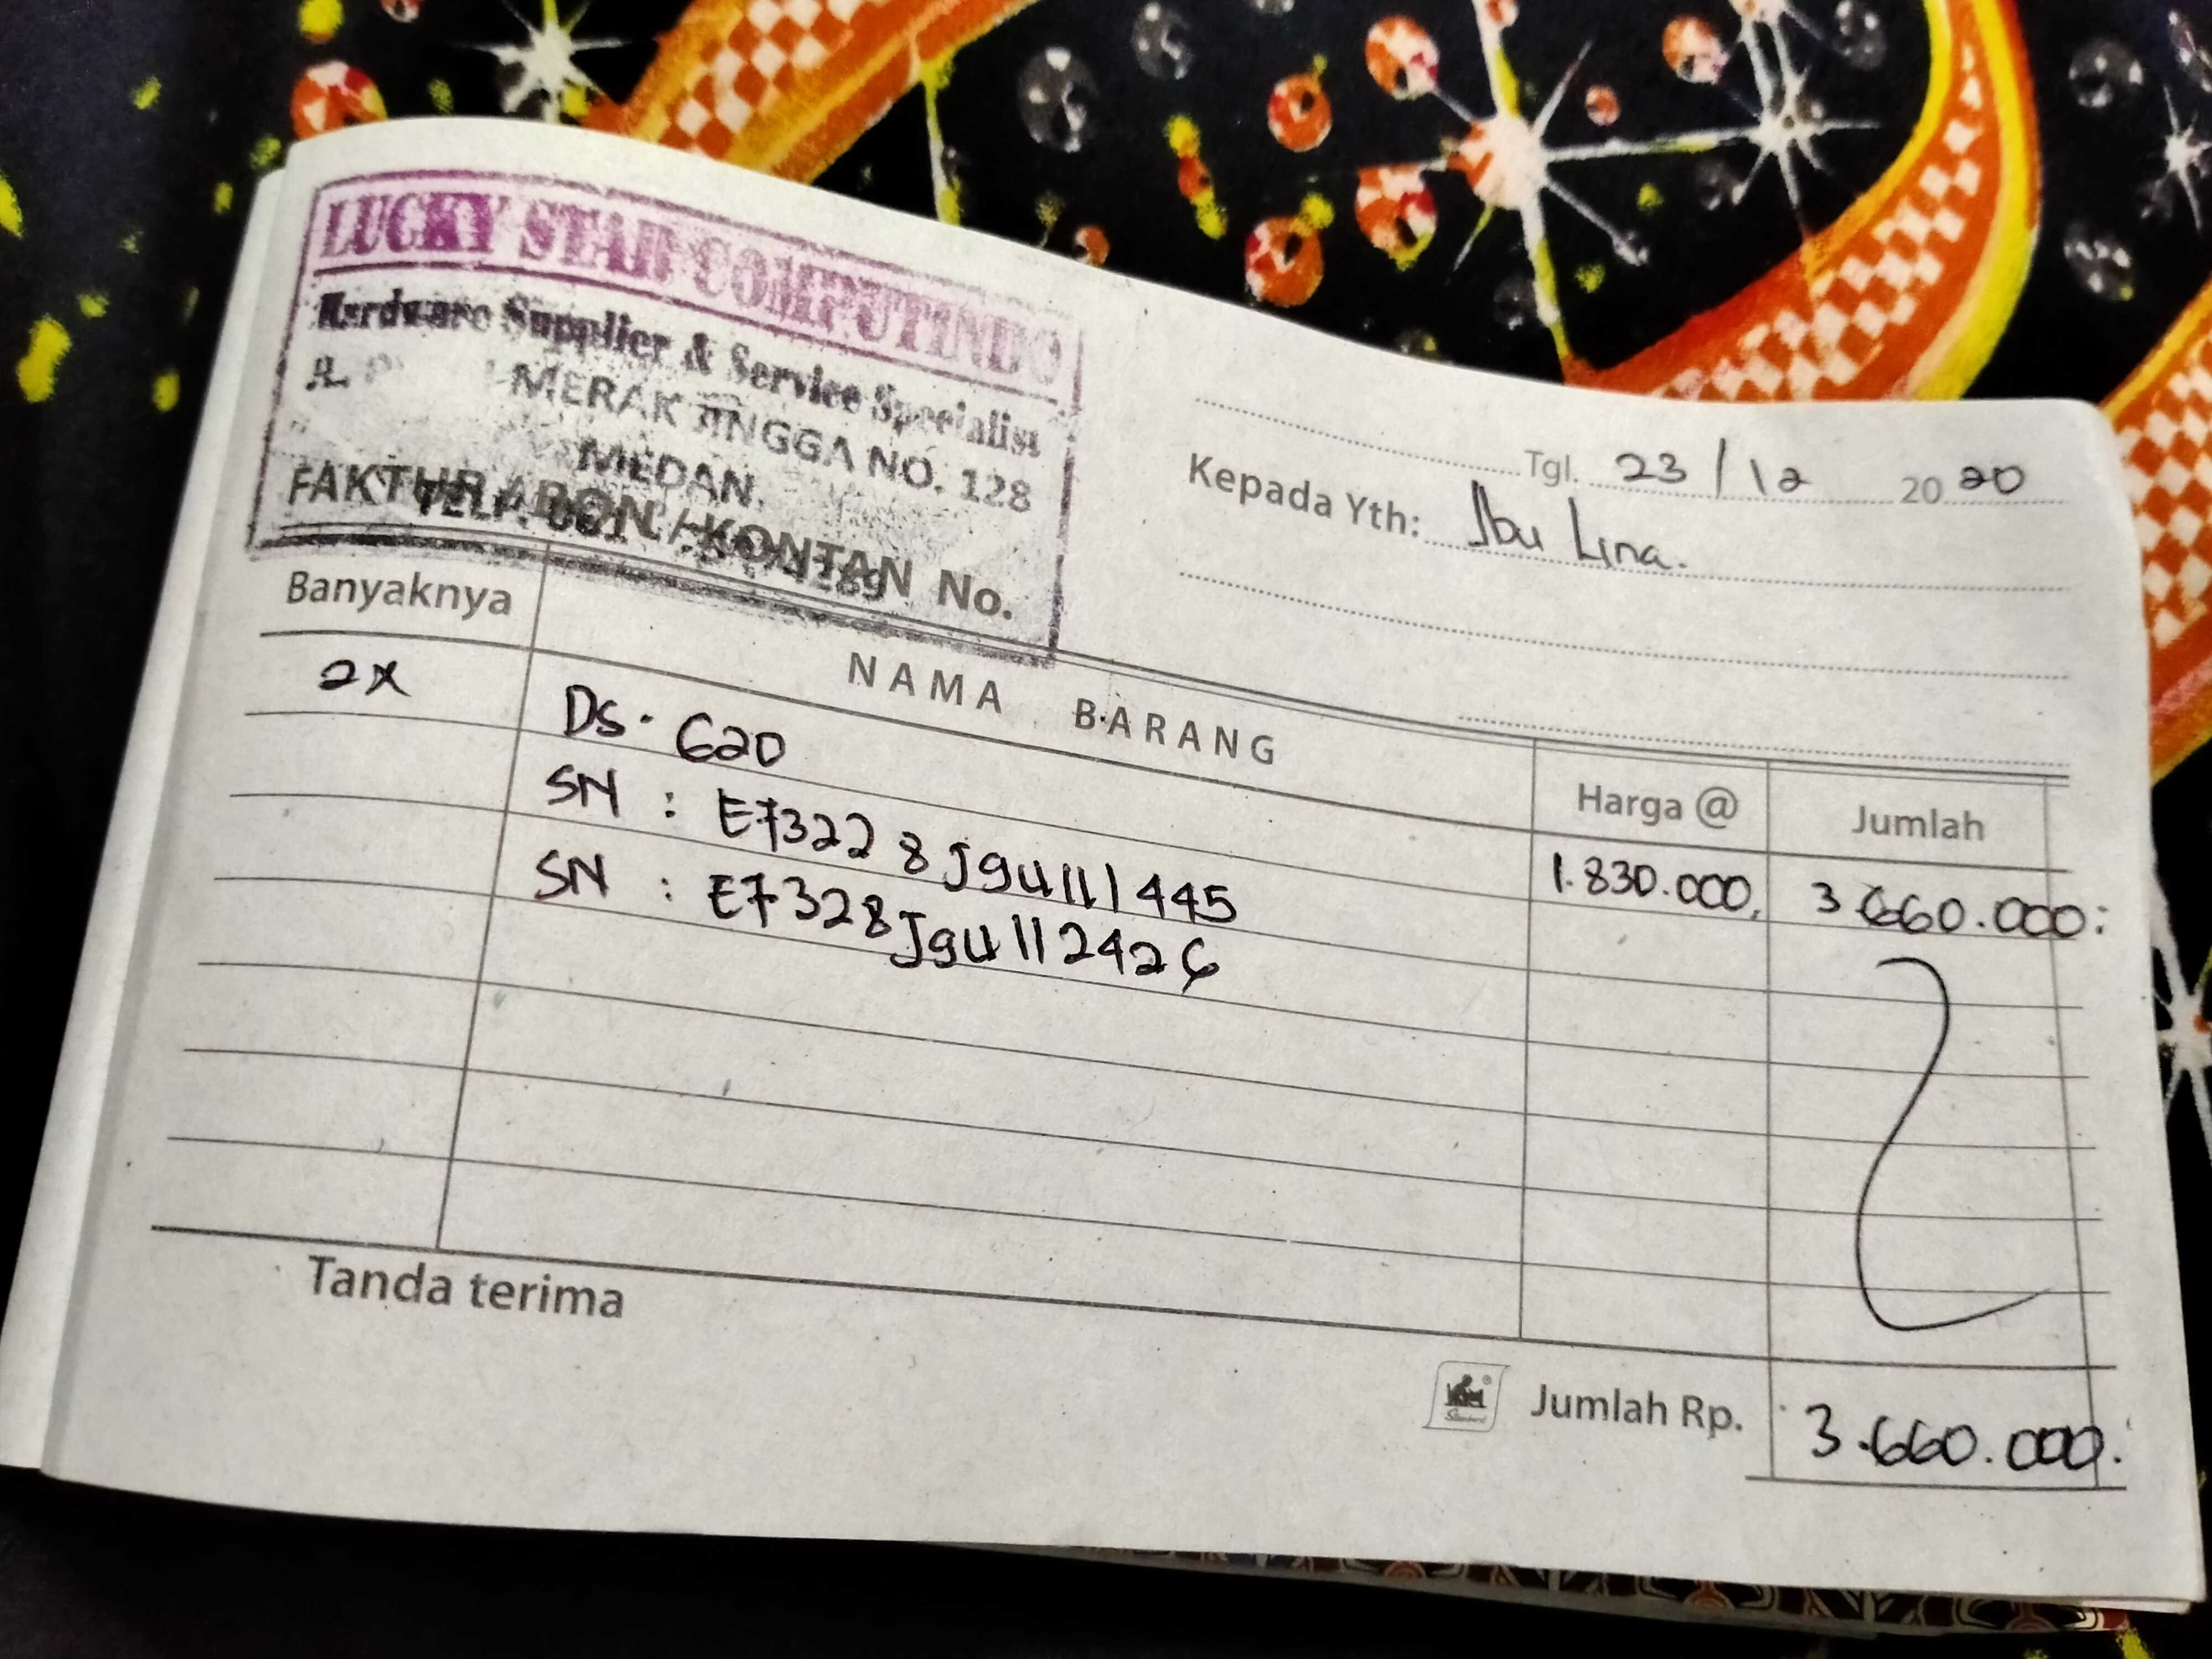 LUCKY STAR COMPUTINDO
Hardware Supplier & Service Specialist
JL. MERAK JINGGA NO. 128
MEDAN.
TELP. 061
FAKTUR / BON / KONTAN No.
Tgl. 23/12 2020
Kepada Yth: Ibu Lina.
Banyaknya NAMA BARANG Harga @ Jumlah
2x Ds. 620 1.830.000, 3.660.000:
SN : E73228J9U111445
SN : E7328J9U112426
Tanda terima
Jumlah Rp. 3.660.000.